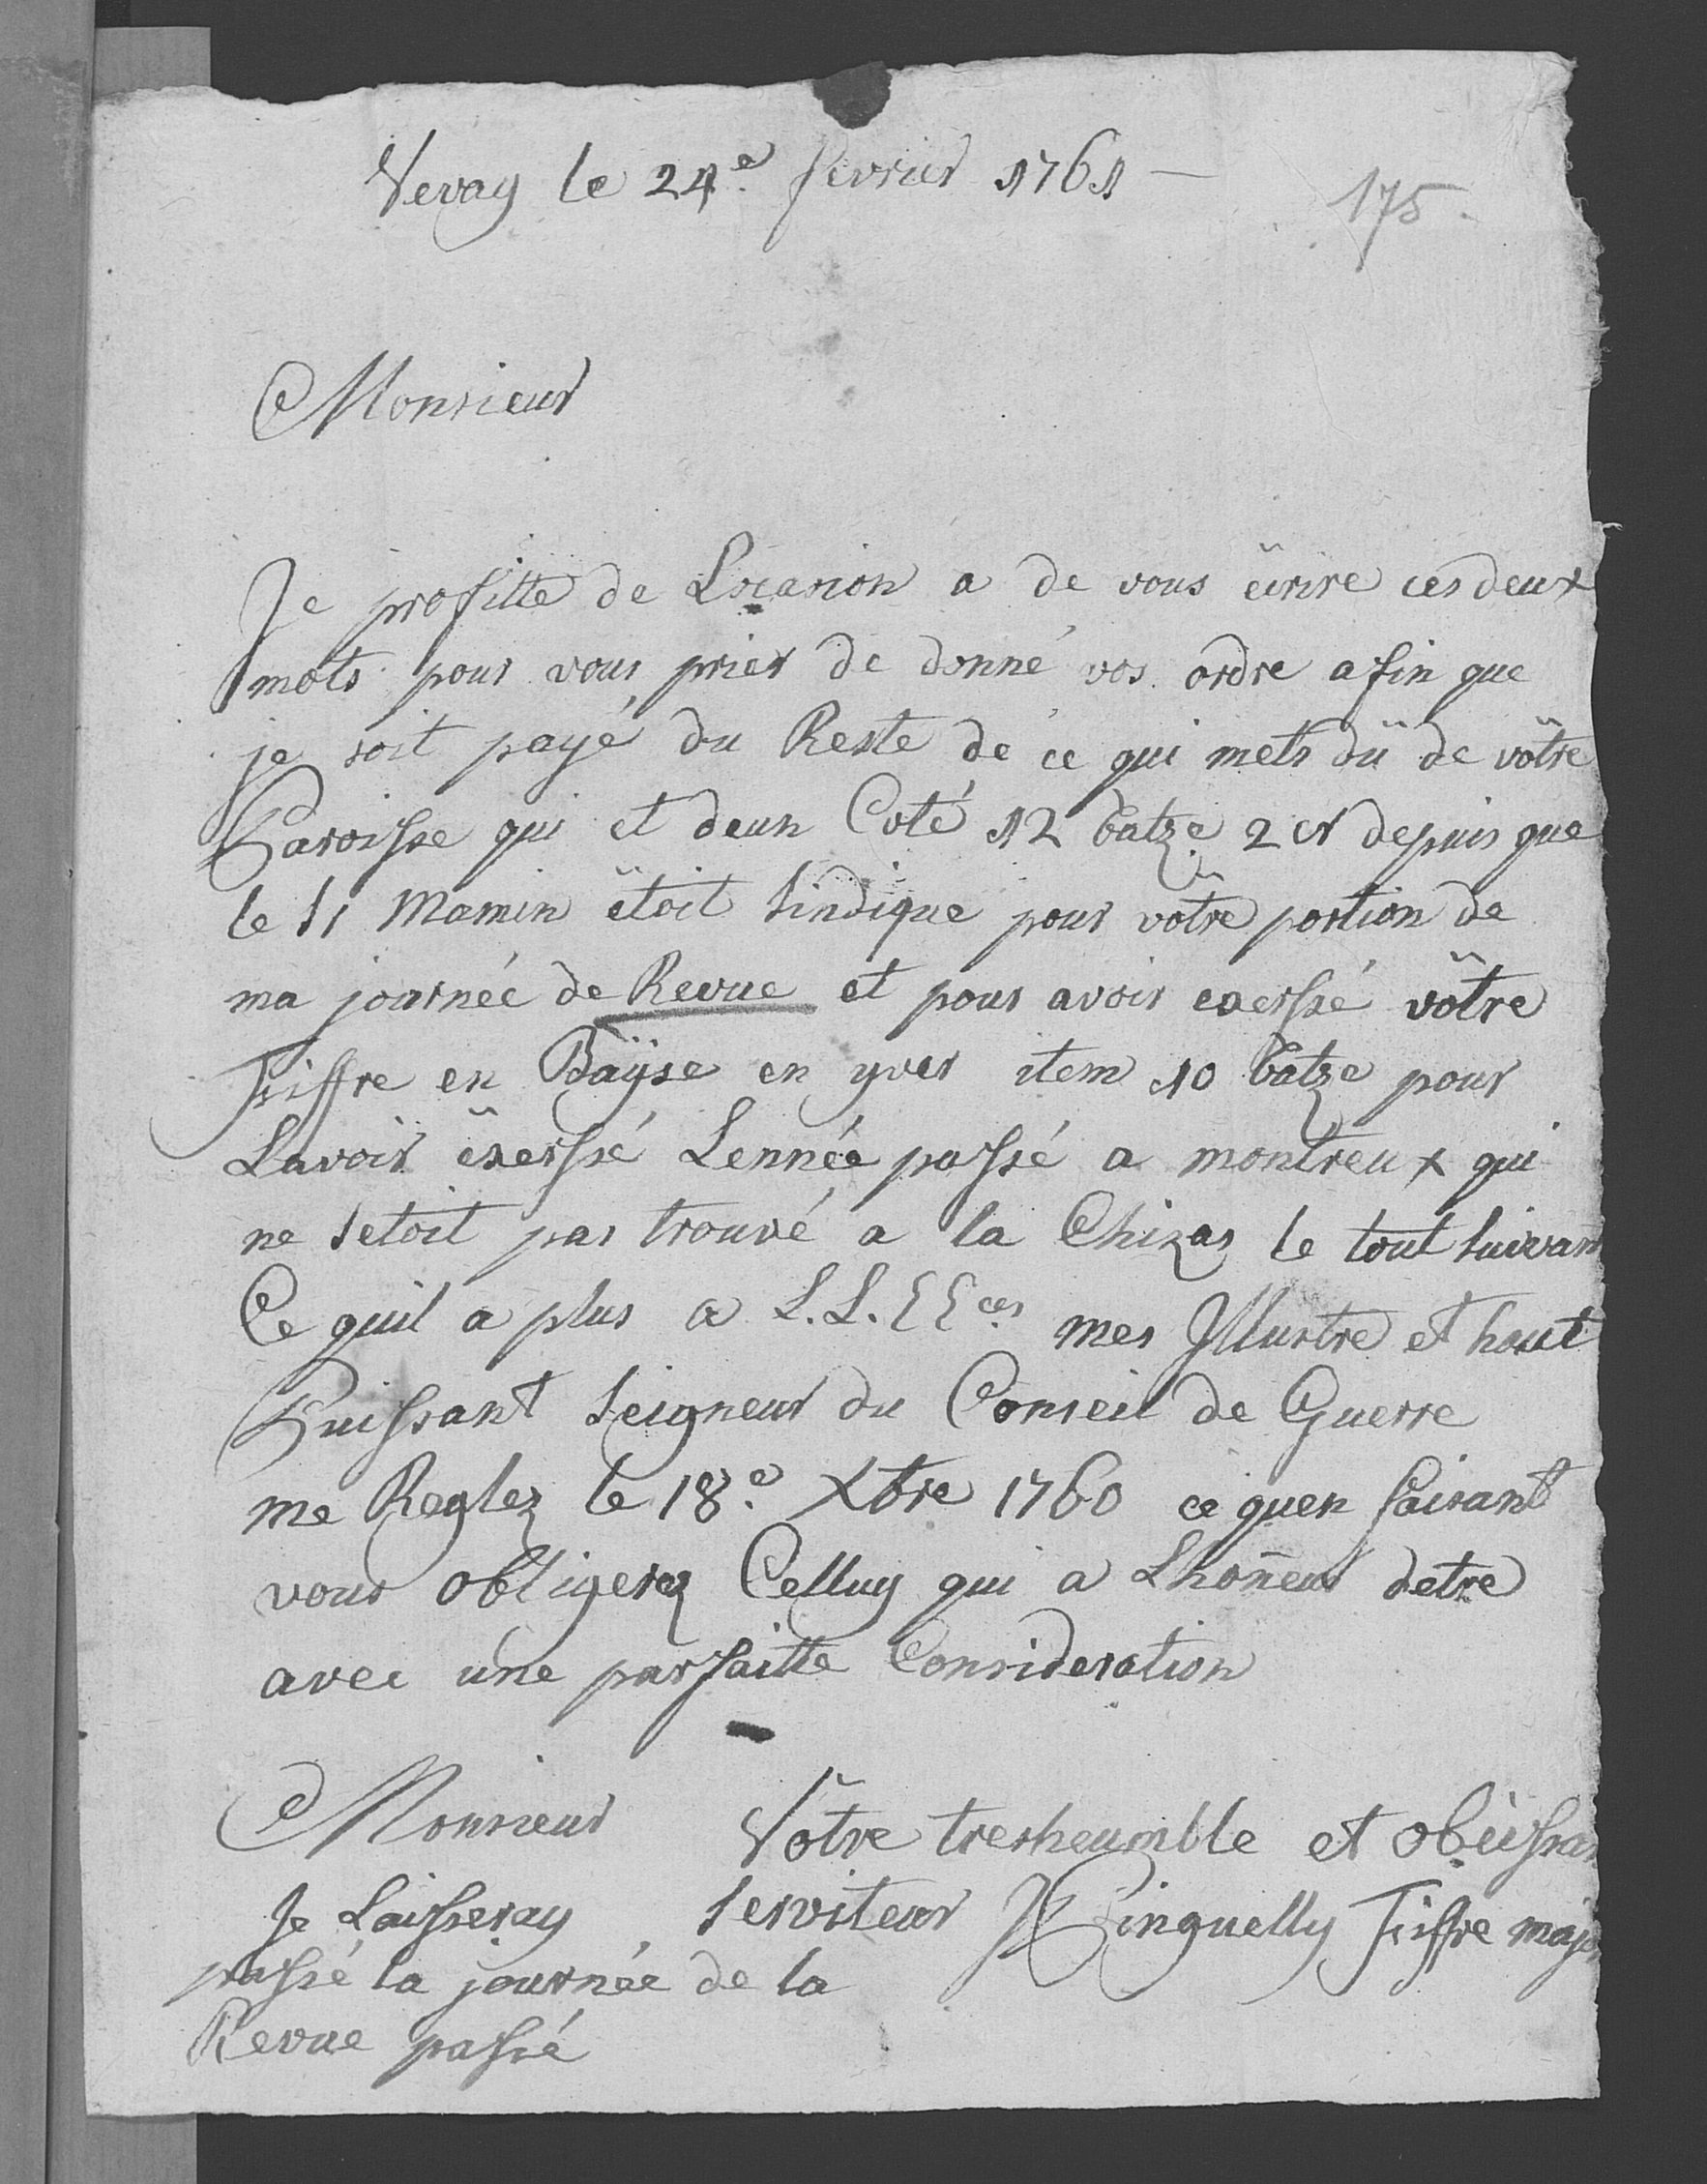 Vevay le 24e fevrier 1761
175.
Monsieur
Je profitte de Locasion a de vous ecrire ces deux
mots pour vous prier de donné vos ordre afin que
je soit payé du Reste de ce qui mets dü de vôtre
Paroisse qui et deun Coté 12 batze 2 cr depuis que
le Sr Mamin ëtoit Sindique pour vôtre portion de
ma journée de Revue et pour avoir exerssé vôtre
fiffre en Bäÿse en yver item 10 batze pour
Lavoir ëxerssé Lennée passé a montreux qui
ne Setoit pas trouvé a la Chizas le tout Suivant
Ce quil a plus a L.L.EEces mes Jllustre et haut
Puissant Seigneur du Conseil de Guerre
me Reglez le 18e Xbre 1760 ce quen faisant
vous obligerez Celluy qui a Lhoneur detre
avec une parfaitte Consideration
Monsieur Vôtre tresheumble et obeissan
Je Laisseray Serviteur Ringuelly fiffre majo
passé la journée de la
Revue passé